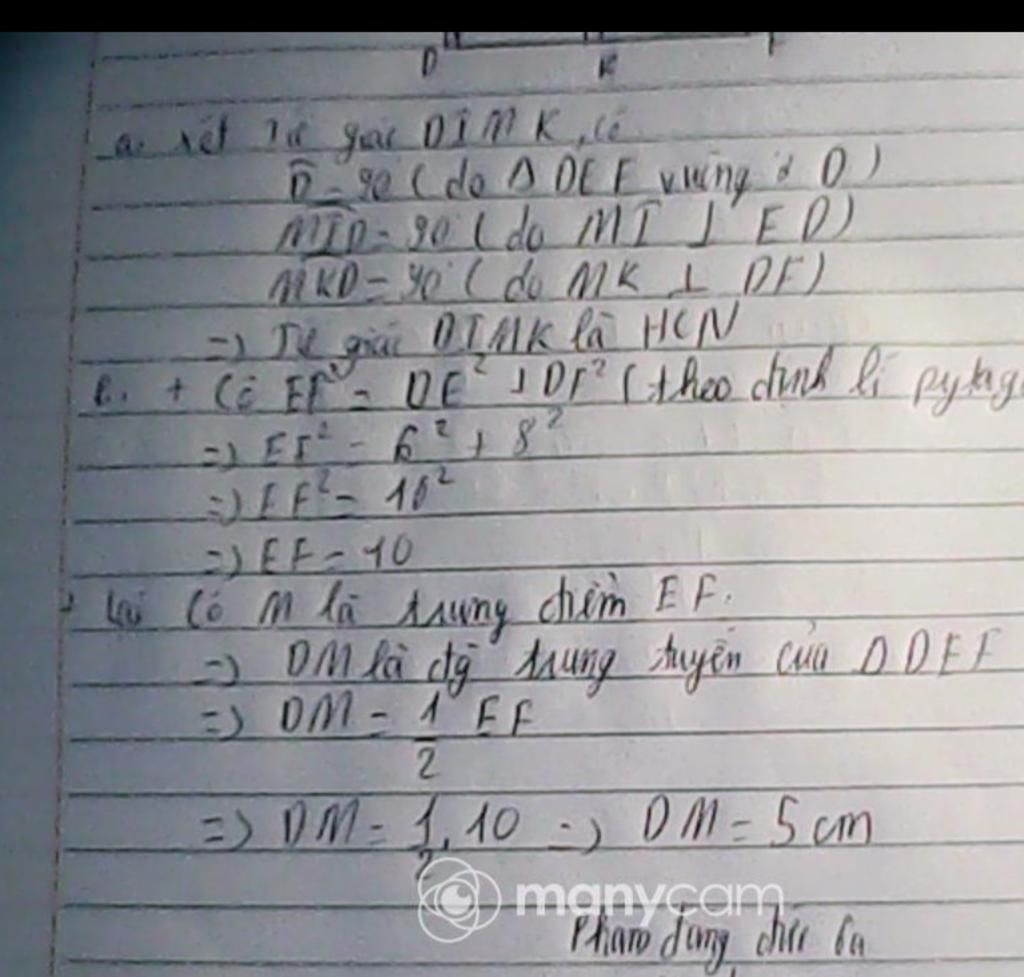 D K
a. xét Tứ giác DIMK, có
D̂ = 90° (do Δ DEF vuông ở D)
MID = 90° (do MI ⊥ ED)
MKD = 90° (do MK ⊥ DF)
=> Tứ giác DIMK là HCN
b. + Có EF² = DE² + DF² (theo định lí pytag
=> EF² = 6² + 8²
=> EF² = 10²
=> EF = 10
Lại có M là trung điểm EF.
=> DM là đg trung tuyến của Δ DEF
=> DM = 1/2 EF
=> DM = 1/2 . 10 => DM = 5 cm
manycam